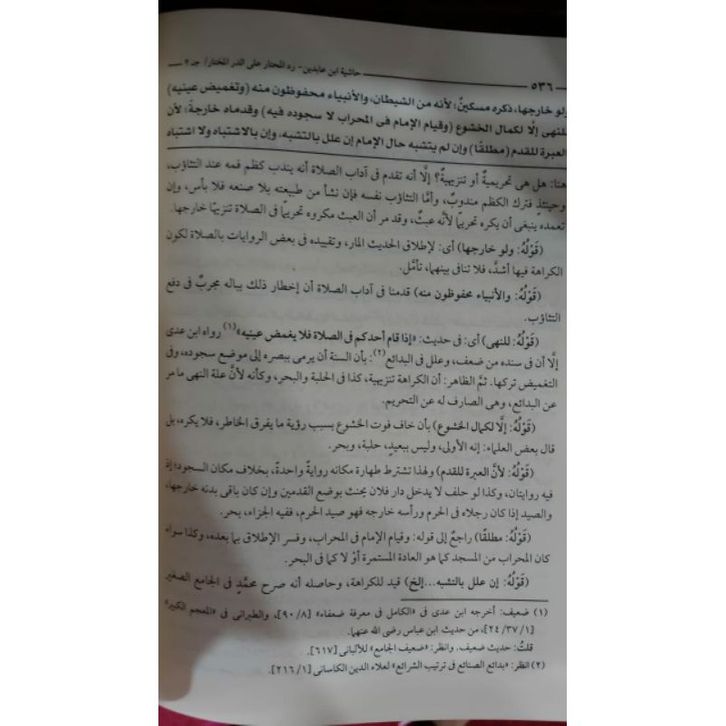 ٥٣٦
حاشية ابن عابدين - رد المحتار على الدر المختار/ جـ ٢
ولو خارجها، ذكره مسكينٌ؛ لأنه من الشيطان، والأنبياء محفوظون منه (وتغميض عينيه)
للنهى إلّا لكمال الخشوع (وقيام الإمام فى المحراب لا سجوده فيه) وقدماه خارجة؛ لأن
العبرة للقدم (مطلقًا) وإن لم يتشبه حال الإمام إن علل بالتشبه، وإن بالاشتباه ولا اشتباه
هنا: هل هى تحريميةٌ أو تنزيهيةٌ؟ إلَّا أنه تقدم فى آداب الصلاة أنه يندب كظم فمه عند التثاؤب،
وحينئذٍ فترك الكظم مندوبٌ، وأمَّا التثاؤب نفسه فإن نشأ من طبيعته بلا صنعه فلا بأس، وإن
تعمده ينبغى أن يكره تحريمًا لأنَّه عبثٌ، وقد مر أن العبث مكروه تحريمًا فى الصلاة تنزيهًا خارجها.
(قَوْلُهُ: ولو خارجها) أى: لإطلاق الحديث المار، وتقييده فى بعض الروايات بالصلاة لكون
الكراهة فيها أشدَّ، فلا تنافى بينهما، تأمَّل.
(قَوْلُهُ: والأنبياء محفوظون منه) قدمنا فى آداب الصلاة أن إخطار ذلك بباله مجربٌ فى دفع
التثاؤب.
(قَوْلُهُ: للنهى) أى: فى حديث: «إذا قام أحدكم فى الصلاة فلا يغمض عينيه»(١) رواه ابن عدى
إلَّا أن فى سنده من ضعف، وعلل فى البدائع(٢): بأن السنة أن يرمى ببصره إلى موضع سجوده، وفى
التغميض تركها. ثمَّ الظاهر: أن الكراهة تنزيهية، كذا فى الحلبة والبحر، وكأنه لأنَّ علة النهى ما مر
عن البدائع، وهى الصارف له عن التحريم.
(قَوْلُهُ: إلَّا لكمال الخشوع) بأن خاف فوت الخشوع بسبب رؤية ما يفرق الخاطر، فلا يكره، بل
قال بعض العلماء: إنه الأولى، وليس ببعيدٍ، حلبة، وبحر.
(قَوْلُهُ: لأنَّ العبرة للقدم) ولهذا تشترط طهارة مكانه روايةً واحدةً، بخلاف مكان السجود؛ إذ
فيه روايتان، وكذا لو حلف لا يدخل دار فلان يحنث بوضع القدمين وإن كان باقى بدنه خارجها،
والصيد إذا كان رجلاه فى الحرم ورأسه خارجه فهو صيد الحرم، ففيه الجزاء، بحر.
(قَوْلُهُ: مطلقًا) راجعٌ إلى قوله: وقيام الإمام فى المحراب، وفسر الإطلاق بما بعده، وكذا سواء
كان المحراب من المسجد كما هو العادة المستمرة أوْ لا كما فى البحر.
(قَوْلُهُ: إن علل بالتشبه...إلخ) قيد للكراهة، وحاصله أنه صرح محمَّدٍ فى الجامع الصغير
(١) ضعيف: أخرجه ابن عدى فى «الكامل فى معرفة ضعفاء» [٩٠/٨]، والطبرانى فى «المعجم الكبير»
[٢٤/٣٧/١]، من حديث ابن عباس رضى الله عنهما.
قلتُ: حديث ضعيف. وانظر: «ضعيف الجامع» للألبانى [٦١٧].
(٢) انظر: «بدائع الصنائع فى ترتيب الشرائع» لعلاء الدين الكاسانى [٢١٦/١].